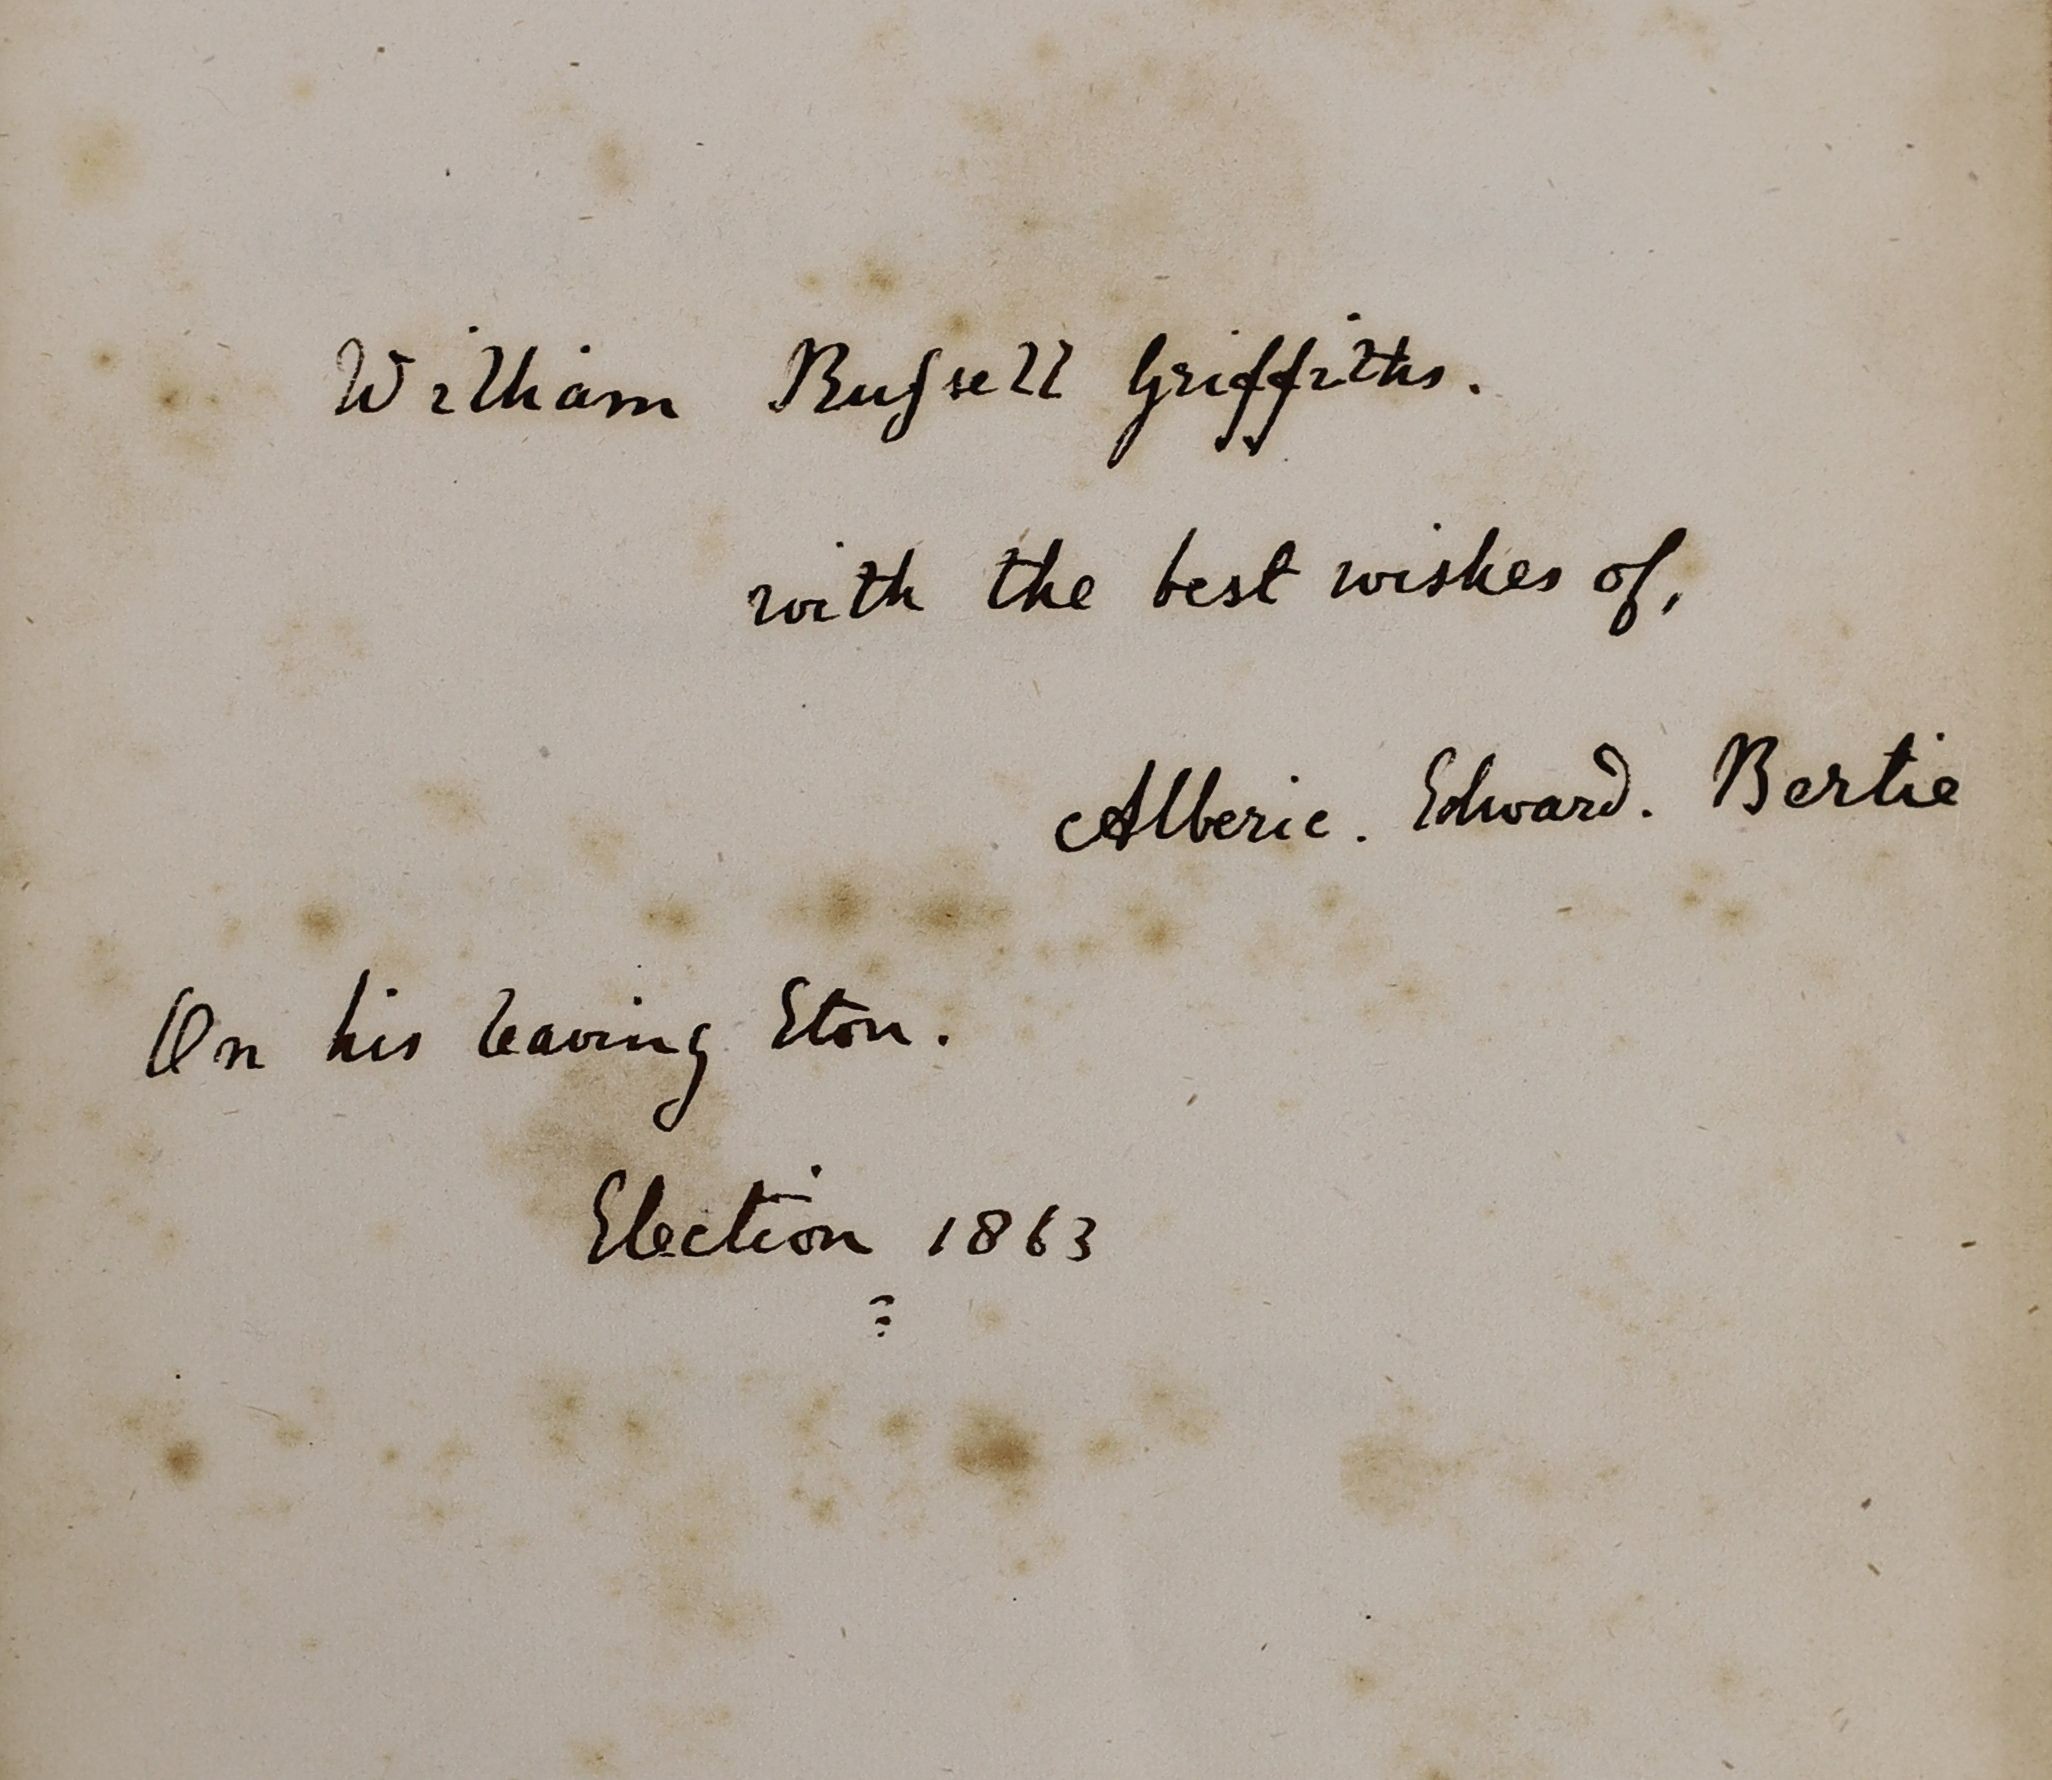 William Ruſsell Griffiths.
with the best wishes of,
Alberic. Edward. Bertie
On his leaving Eton.
Election 1863